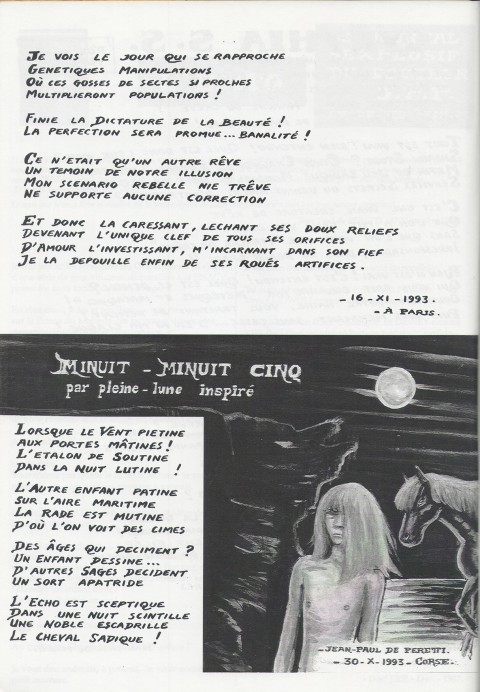 Je vois le jour qui se rapproche
Genetiques Manipulations
Où ces gosses de sectes si proches
Multiplieront populations !
Finie la Dictature de la Beauté !
La perfection sera promue... Banalité !
Ce n'etait qu'un autre rêve
Un temoin de notre illusion
Mon scenario rebelle nie trêve
Ne supporte aucune correction
Et donc la caressant, lechant ses doux reliefs
Devenant l'unique clef de tous ses orifices
D'amour l'investissant, m'incarnant dans son fief
Je la depouille enfin de ses roués artifices.
- 16 - XI - 1993.
- à Paris.
Minuit - Minuit cinq
par pleine-lune inspiré
Lorsque le Vent pietine
Aux portes mâtines !
L'etalon de Soutine
Dans la Nuit lutine !
L'Autre enfant patine
Sur l'aire maritime
La rade est mutine
D'où l'on voit des cimes
Des Âges qui deciment ?
Un enfant dessine...
D'autres Sages decident
Un sort apatride
L'Echo est sceptique
Dans une nuit scintille
Une noble escadrille
Le Cheval Sadique !
- Jean-Paul de Peretti.
- 30 - X - 1993 - Corse.